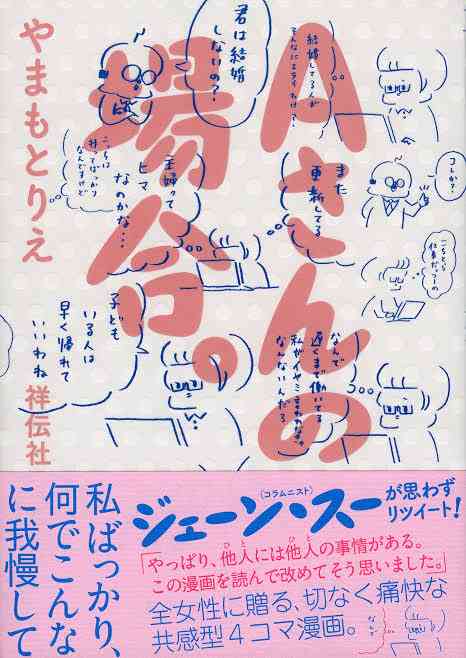 Aさんの
場合。
やまもとりえ
祥伝社
君は結婚
しないの?
結婚してる人が
そんなにエライわけ?
また
更新してる
主婦って
ヒマ
なのかな…
こっちは
待ってばっかり
なんですけど
コレか?
こちとら
仕事だっつーの
子ども
いる人は
早く帰れて
いいわね
なんで
遅くまで働いてる
私がイヤミ言われなきゃ
なんないんだろ
(コラムニスト)
ジェーン・スーが思わず
リツイート!
「やっぱり、他人には他人の事情がある。
この漫画を読んで改めてそう思いました。」
全女性に贈る、切なく痛快な
共感型4コマ漫画。
私ばっかり、
何でこんな
に我慢して